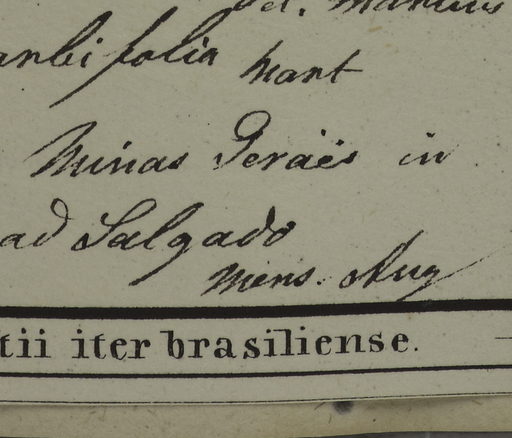 Det. Martius
arbifolia Mart
Minas Geraës in
ad Salgado
Mens. Aug
tii iter brasiliense.